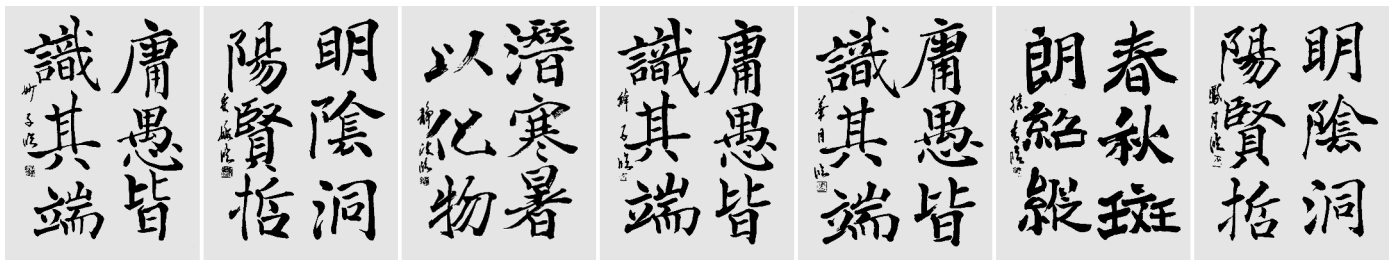 庸愚皆
識其端
明陰洞
陽賢哲
潛寒暑
以化物
庸愚皆
識其端
庸愚皆
識其端
華月臨
春秋斑
朗紹縱
明陰洞
陽賢哲